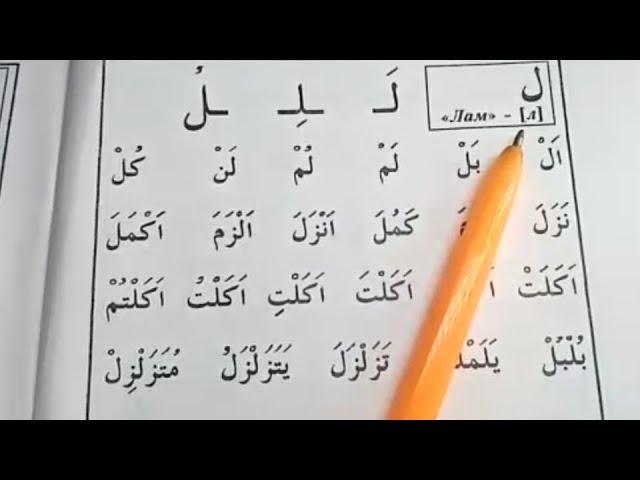 ل لَـ ـلِـ ـلُ
«Лам» - [л]
اَلْ بَلْ لَمْ لُمْ لَنْ كُلْ
نَزَلَ كَمُلَ اَنْزَلَ اَلْزَمَ اَكْمَلَ
اَكَلَتْ اَكَلْتَ اَكَلْتِ اَكَلْتُ اَكَلْتُمْ
بُلْبُلْ تَزَلْزَلَ يَتَزَلْزَلُ مُتَزَلْزِلْ